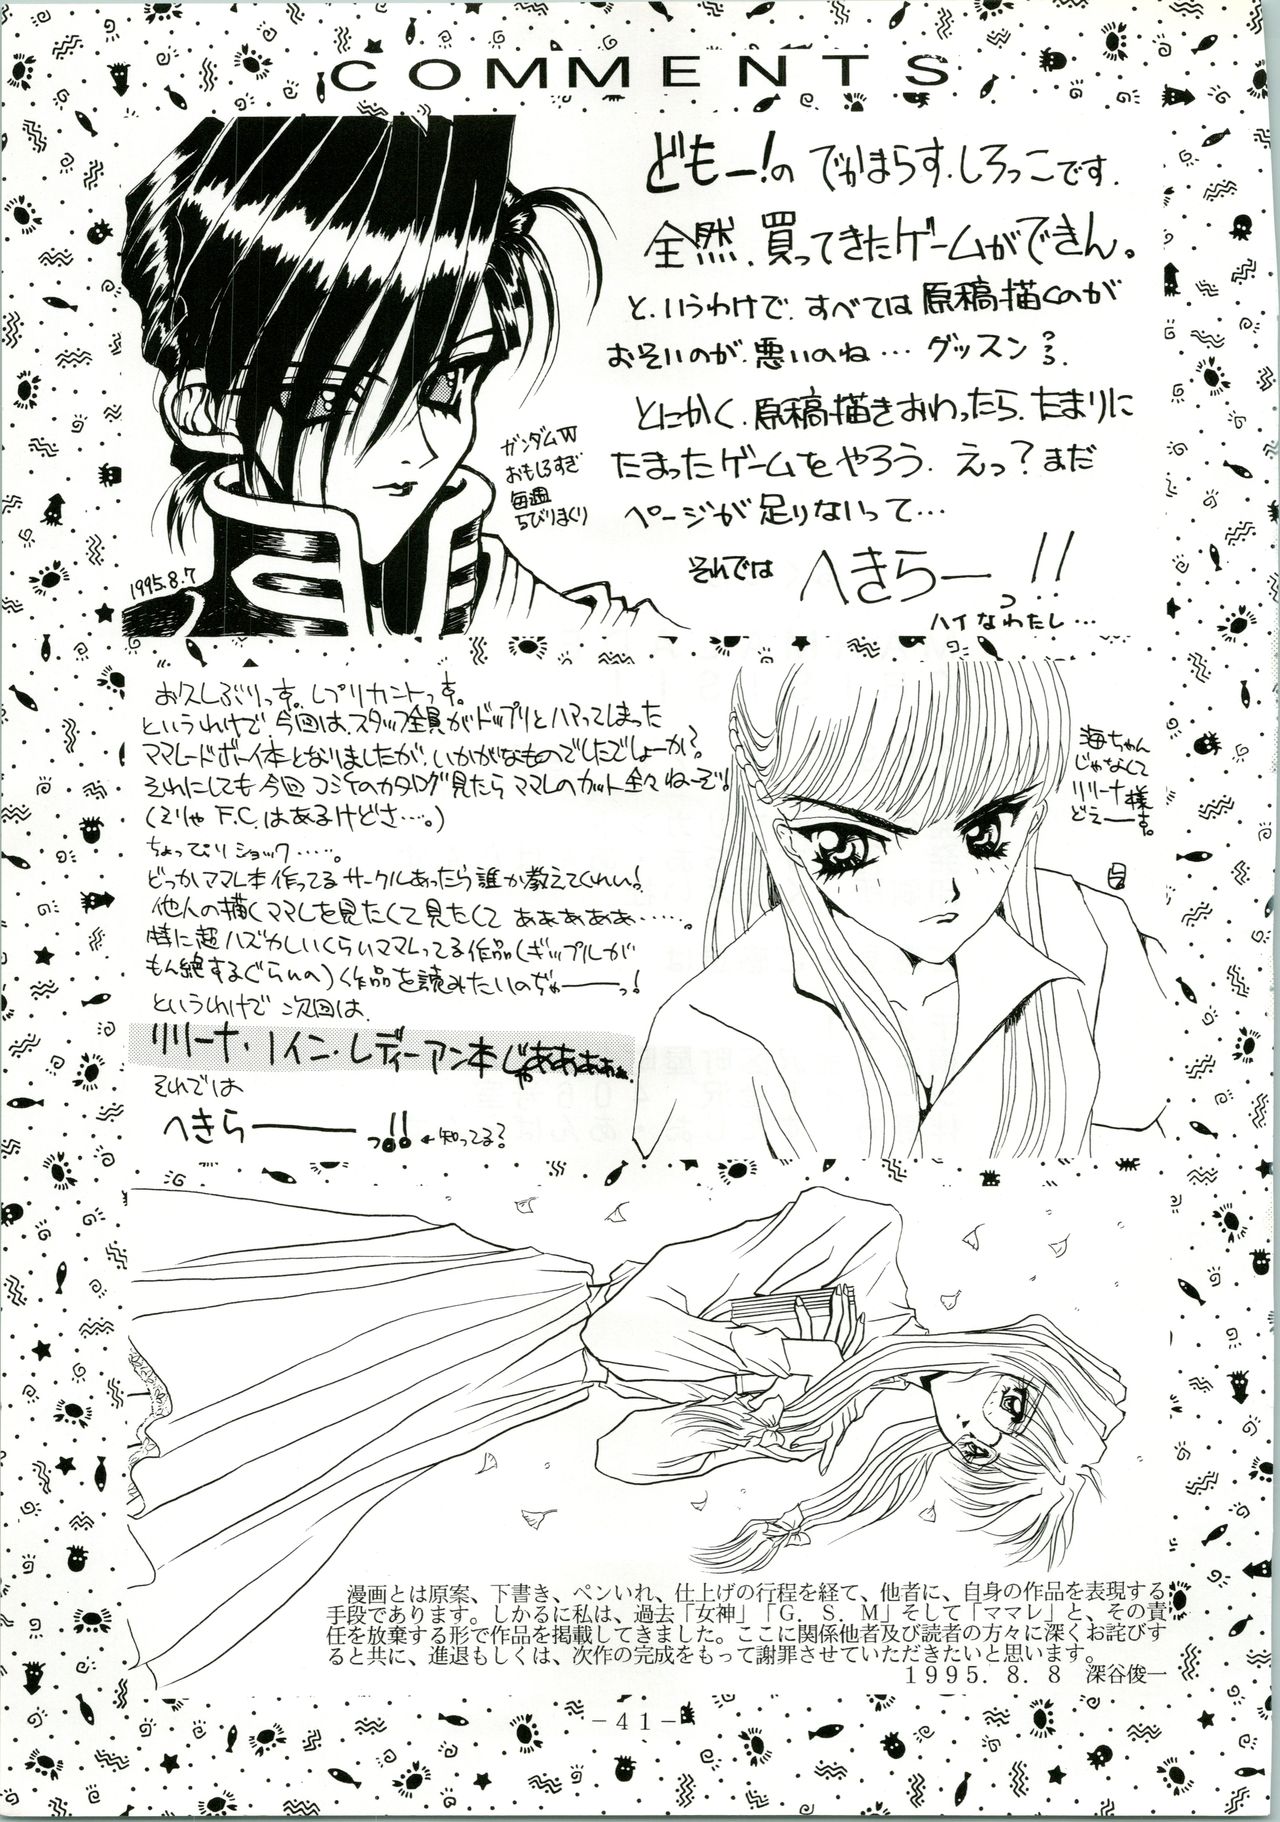 COMMENTS
どもー!の でかまらす.しろっこです.
全然.買ってきたゲームができん。
と.いうわけで.すべては原稿描くのが
おそいのが.悪いのね… グッスン
とにかく.原稿描きおわったら.たまりに
たまったゲームをやろう. えっ?まだ
ページが足りないって…
それでは へきらーっ!!
ハイなわたし…
ガンダムW
おもしろすぎ
毎週
ちびりまくり
1995.8.7
お久しぶりっす。レプリカントっす。
というわけで、今回は、スタッフ全員がドップリとハマってしまった
ママレードボーイ本となりましたが、いかがなものでしたでしょーか?
それにしても今回コミケのカタログ見たらママレのカット全々ねーぞ!
(えりゃF.C.はあるけどさ…。)
ちょっぴりショック……。
どっかママレ本作ってるサークルあったら誰か教えてくれい!
他人の描くママレを見たくて見たくて ああああああ……。
特に超ハズかしいくらいママレってる作品(ギップルが
もん絶するぐらいの)く作品を読みたいのぢゃーーっ!
というわけで 次回は、
リリーナ・ノイン・レディーアン本じゃああああぁ
それでは
へきらーーーっ!! ←知ってる?
海ちゃん
じゃなくて
リリーナ様
どえーーす。
漫画とは原案、下書き、ペンいれ、仕上げの行程を経て、他者に、自身の作品を表現する
手段であります。しかるに私は、過去「女神」「G.S.M」そして「ママレ」と、その責
任を放棄する形で作品を掲載してきました。ここに関係他者及び読者の方々に深くお詫びす
ると共に、進退もしくは、次作の完成をもって謝罪させていただきたいと思います。
1995.8.8 深谷俊一
-41-